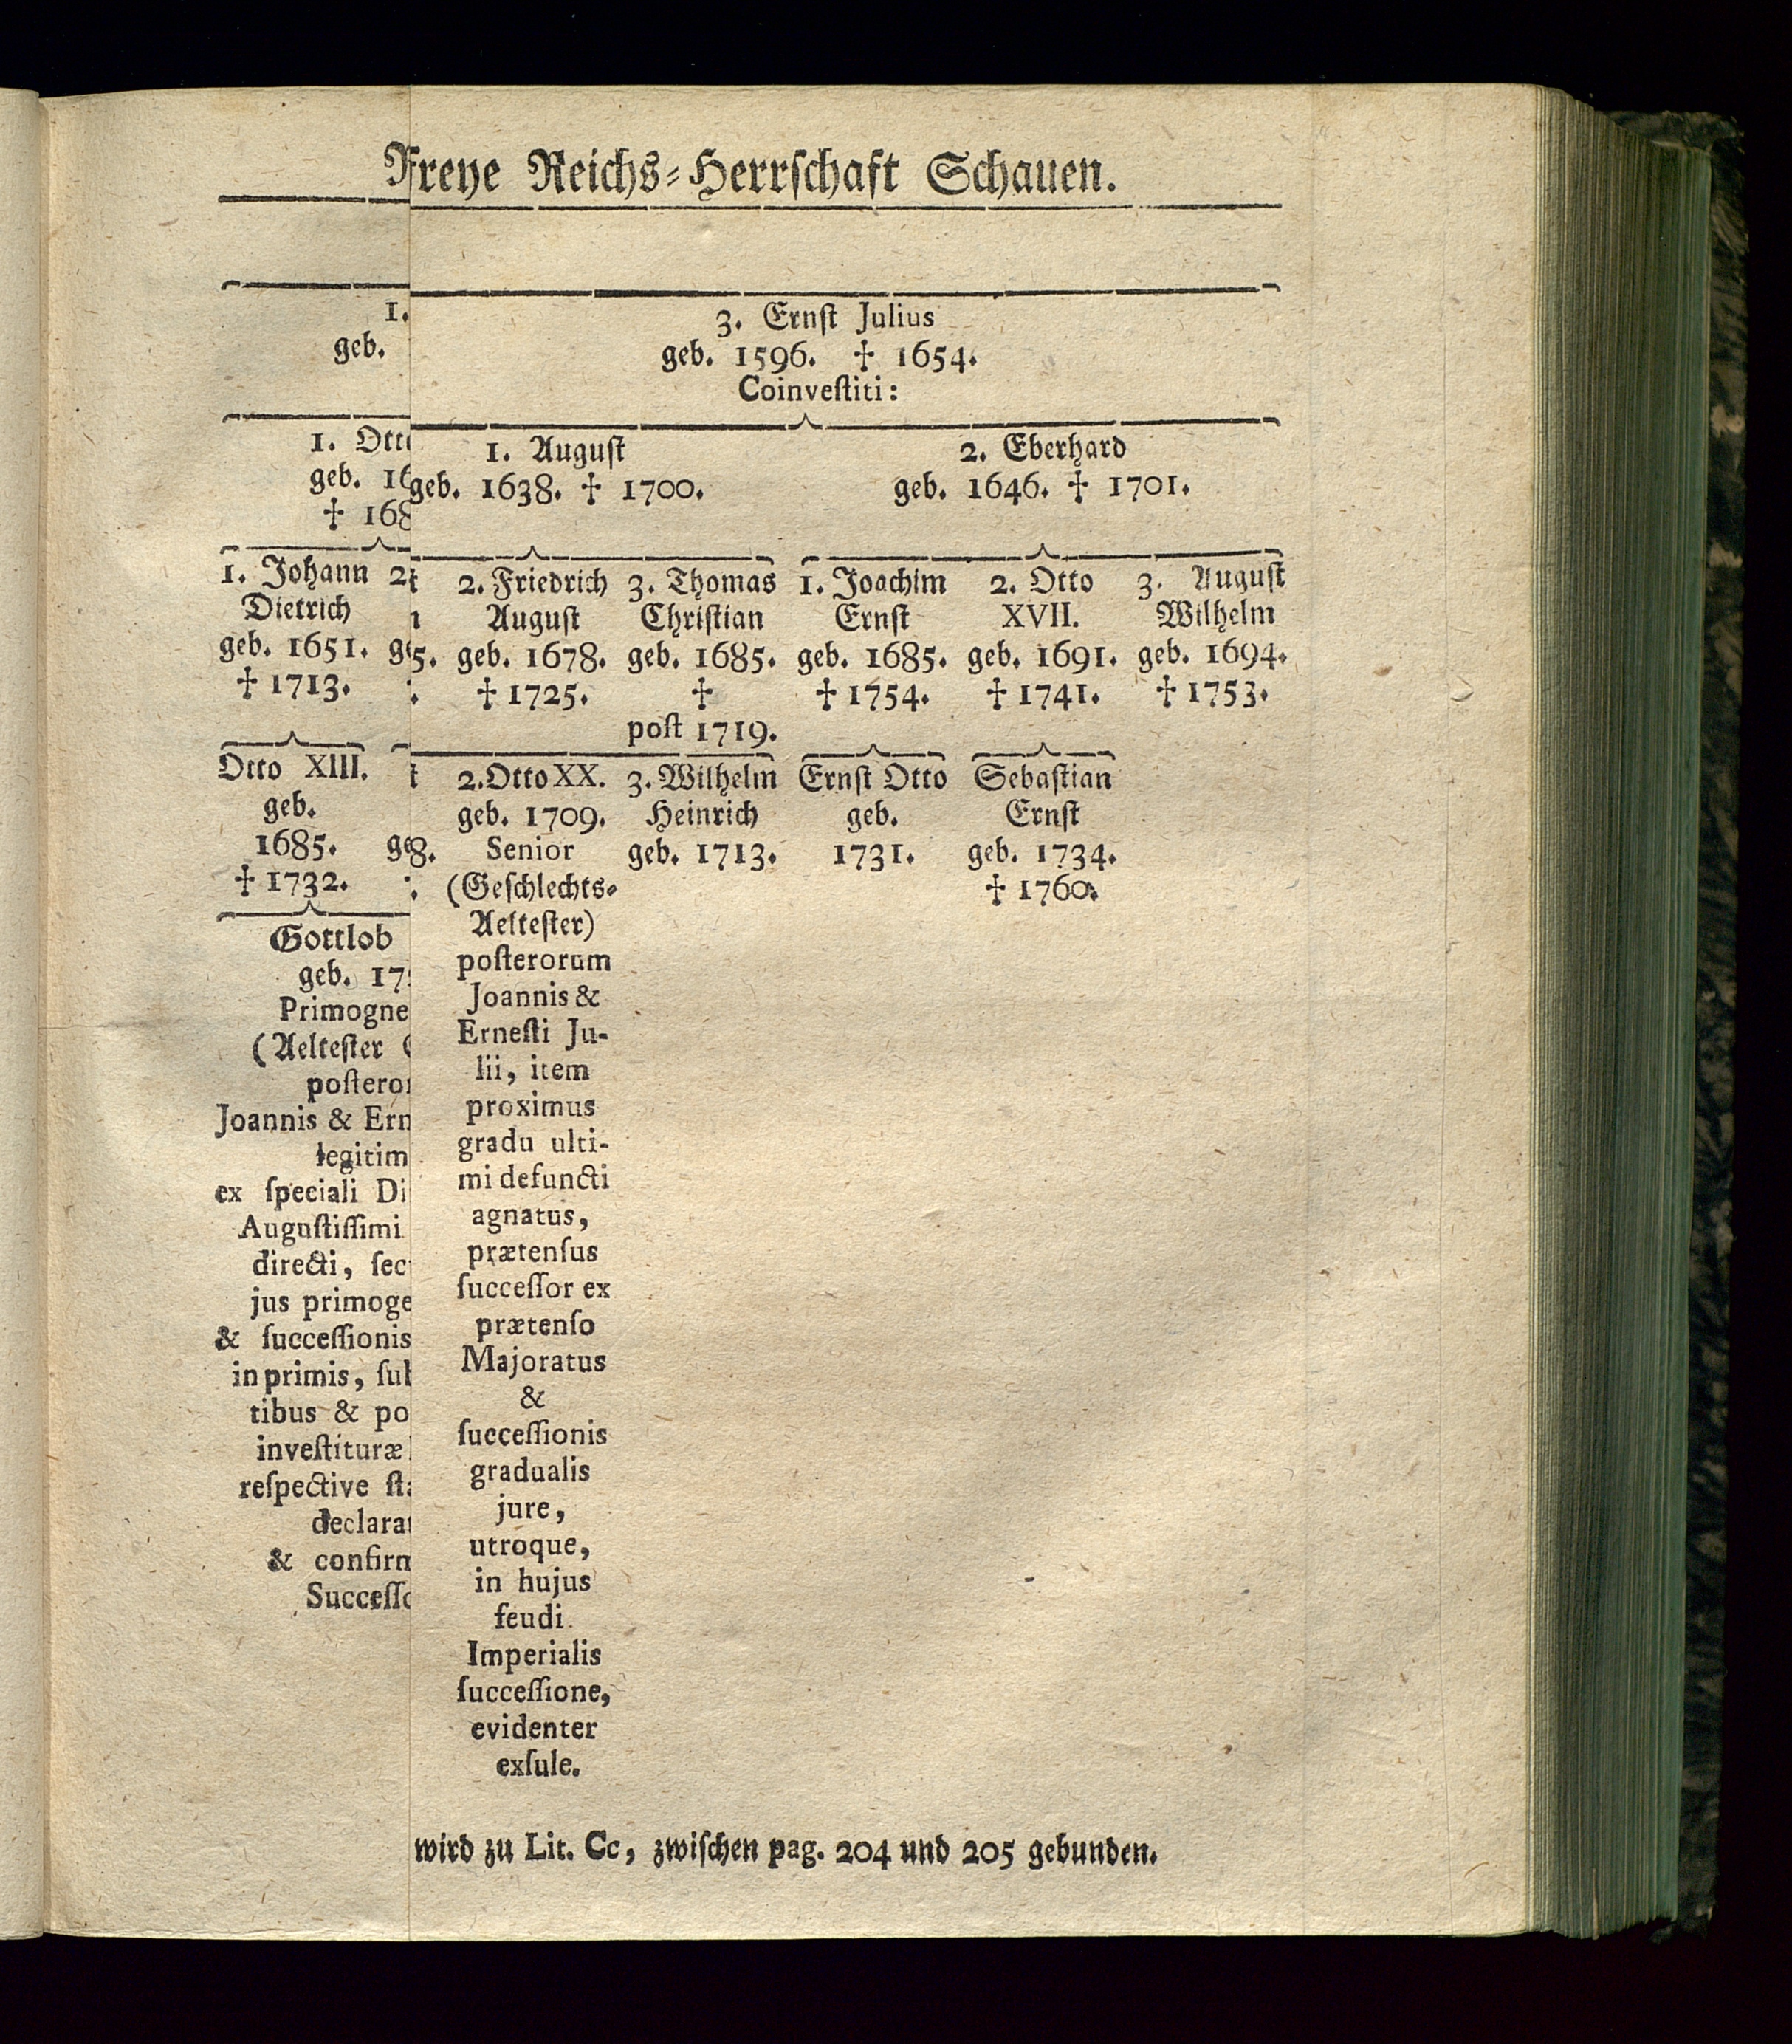 Freye Reichs-Herrschaft Schauen.
1.
geb.
3. Ernſt Julius
geb. 1596. † 1654.
Coinveſtiti:
1.
geb.
†
1. Auguſt
geb. 1638. † 1700.
2. Eberhard
geb. 1646. † 1701.
1. Johann
Dietrich
geb. 1651.
† 1713.
2. Friedrich
Auguſt
geb. 1678.
† 1725.
3. Thomas
Chriſtian
geb. 1685.
†
poſt 1719.
1. Joachim
Ernſt
geb. 1685.
† 1754.
2. Otto
XVII.
geb. 1691.
† 1741.
3. Auguſt
Wilhelm
geb. 1694.
† 1753.
Otto XIII.
geb.
1685.
† 1732.
2. Otto XX.
geb. 1709.
Senior
(Geſchlechts-
Aelteſter)
poſterorum
Joannis &
Erneſti Ju-
lii, item
proximus
gradu ulti-
mi defuncti
agnatus,
prætenſus
ſucceſſor ex
prætenſo
Majoratus
&
ſucceſſionis
gradualis
jure,
utroque,
in hujus
feudi
Imperialis
ſucceſſione,
evidenter
exſule.
3. Wilhelm
Heinrich
geb. 1713.
Ernſt Otto
geb.
1731.
Sebaſtian
Ernſt
geb. 1734.
† 1760.
Gottlob
geb.
Primogne
(Aelteſter
poſteror
Joannis & Ern
legitim
ex ſpeciali Di
Auguſtiſſimi
directi, ſec
jus primoge
& ſucceſſionis
in primis, ſub
tibus & po
inveſtituræ
reſpective ſta
declarat
& confirm
Succeſſo
wird zu Lit. Cc, zwiſchen pag. 204 und 205 gebunden.